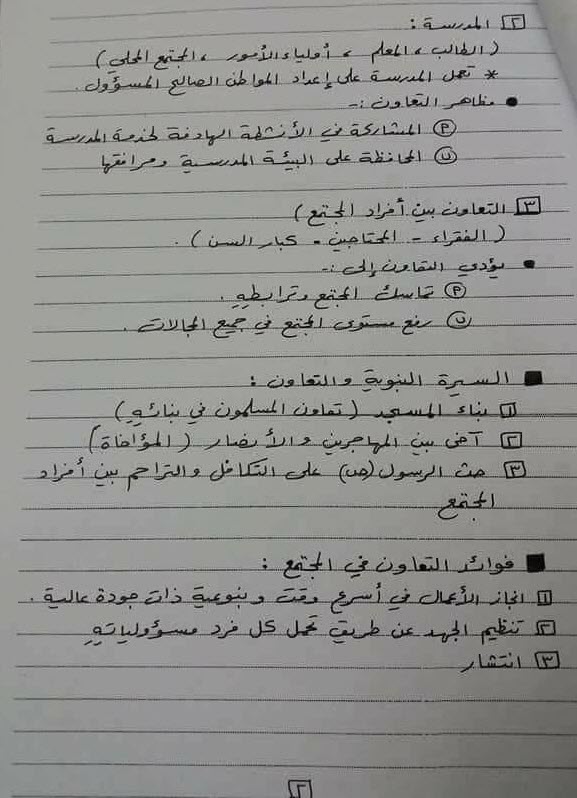 ٢ المدرسة :
( الطالب ، المعلم ، أولياء الأمور ، المجتمع المحلي )
* تعمل المدرسة على إعداد المواطن الصالح المسؤول .
● مظاهر التعاون :-
أ المشاركة في الأنشطة الهادفة لخدمة المدرسة
ب المحافظة على البيئة المدرسية ومرافقها
٣ التعاون بين أفراد المجتمع )
( الفقراء - المحتاجين - كبار السن ) .
● يؤدي التعاون إلى :-
أ تماسك المجتمع وترابطه .
ب رفع مستوى المجتمع في جميع المجالات .
■ السيرة النبوية والتعاون :
١ بناء المسجد ( تعاون المسلمون في بنائه )
٢ آخى بين المهاجرين والأنصار ( المؤاخاة )
٣ حث الرسول (ص) على التكافل والتراحم بين أفراد
المجتمع
■ فوائد التعاون في المجتمع :
١ انجاز الأعمال في أسرع وقت وبنوعية ذات جودة عالية .
٢ تنظيم الجهد عن طريق تحمل كل فرد مسؤولياته
٣ انتشار
٢